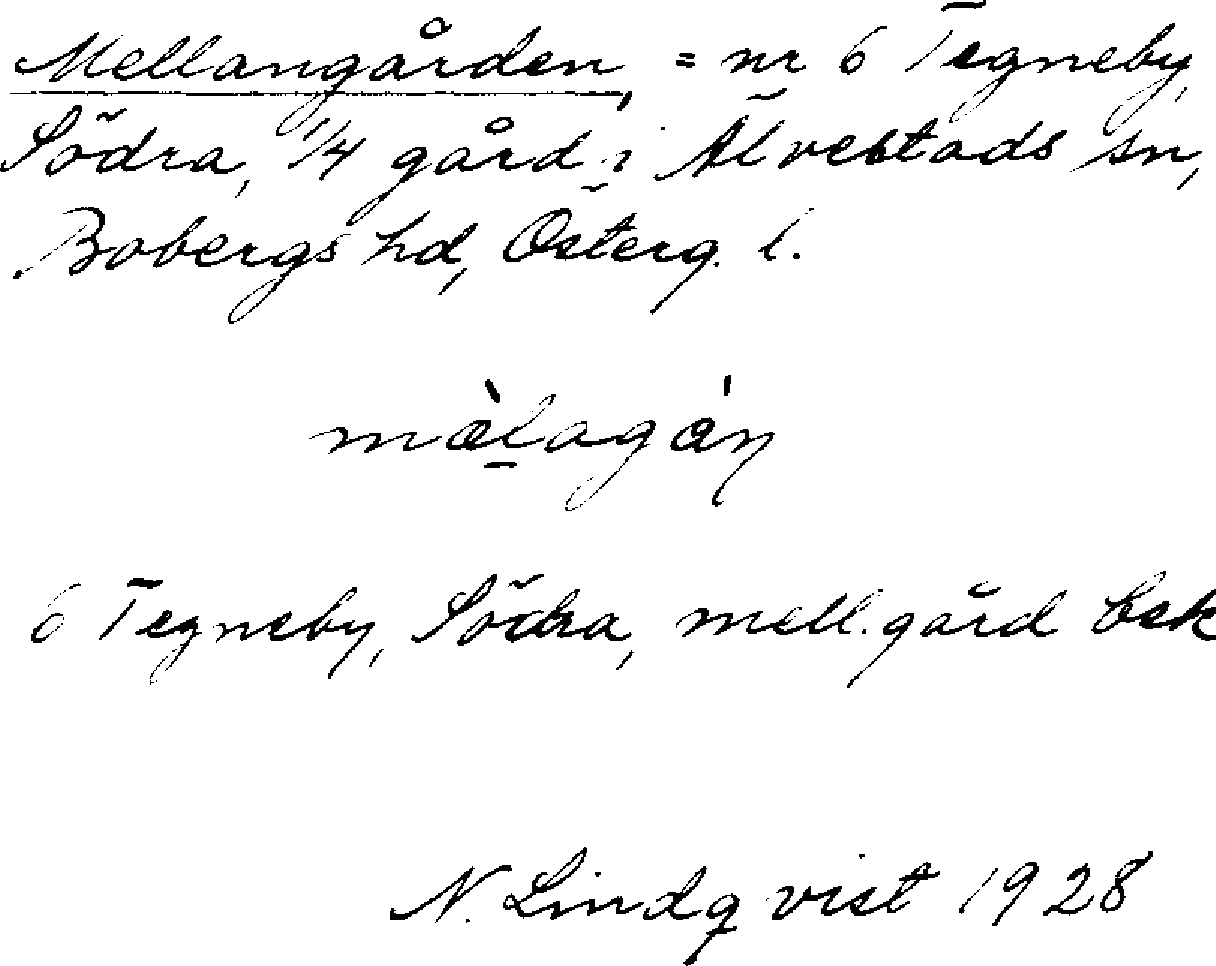 Mellangården, = nr 6 Tegneby,
Södra, 1/4 gård i Älvestads sn,
Bobergs hd, Österg. l.
mæ̀lagán
6 Tegneby, Södra, mell. gård bek
N. Lindqvist 1928